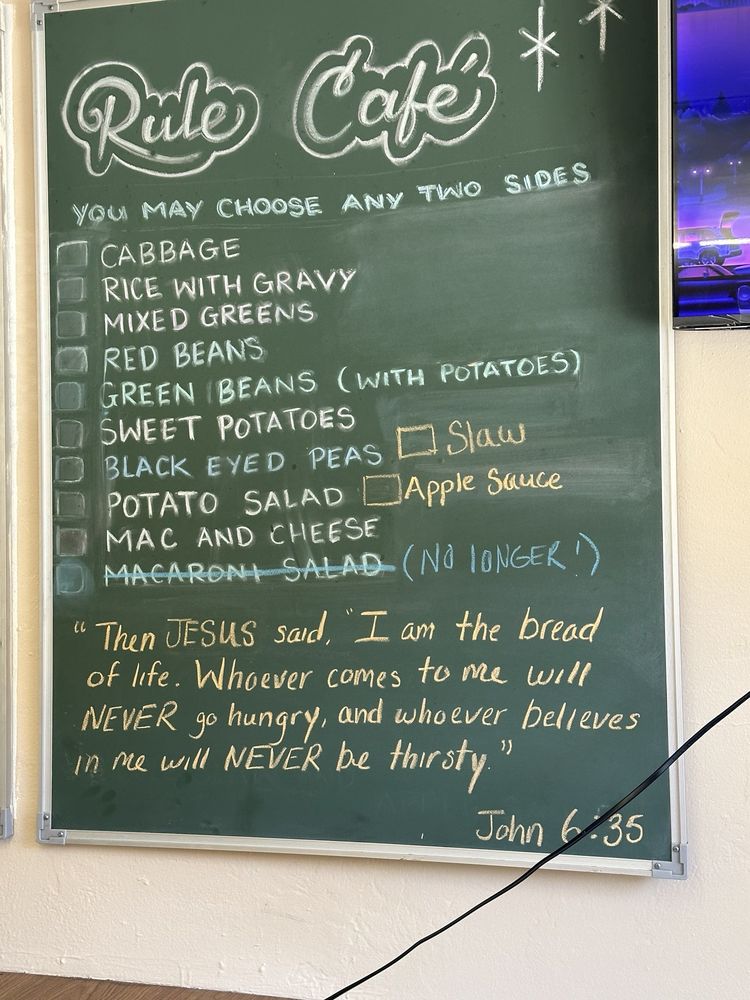 Rule Café
YOU MAY CHOOSE ANY TWO SIDES
CABBAGE
RICE WITH GRAVY
MIXED GREENS
RED BEANS
GREEN BEANS (WITH POTATOES)
SWEET POTATOES
Slaw
BLACK EYED PEAS
Apple Sauce
POTATO SALAD
MAC AND CHEESE
MACARONI SALAD (NO LONGER!)
"Then JESUS said, "I am the bread
of life. Whoever comes to me will
NEVER go hungry, and whoever believes
in me will NEVER be thirsty."
John 6:35